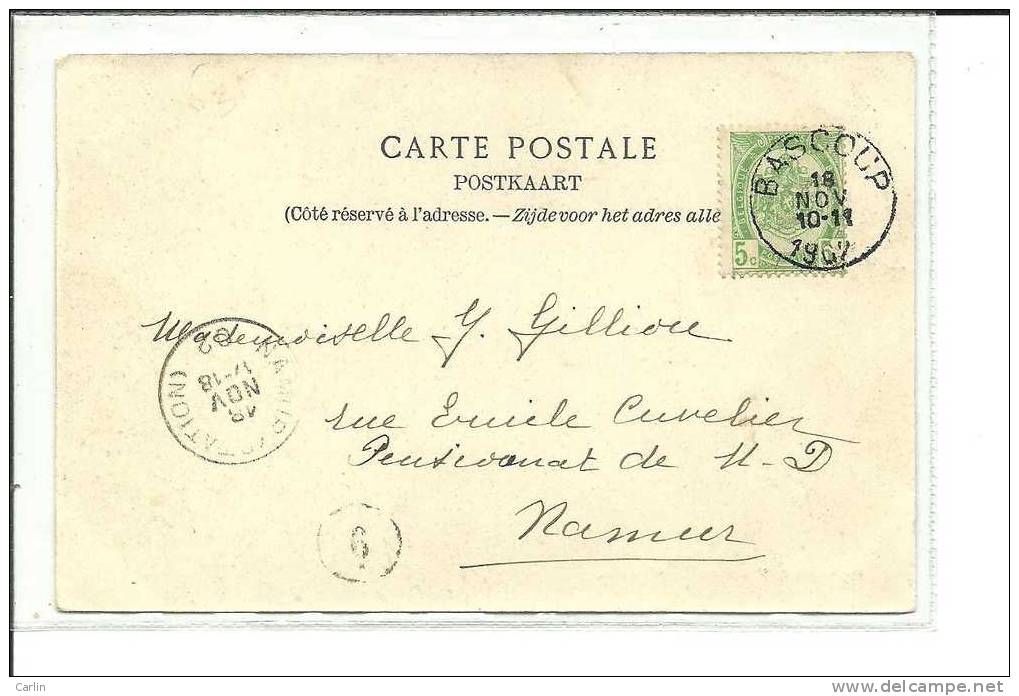 CARTE POSTALE
POSTKAART
(Côté réservé à l'adresse. — Zijde voor het adres alle
BELGIQUE
5 c
BASCOUP
18
NOV
10-11
1902
Mademoiselle Y. Gillion
rue Emile Cuvelier
Pensionnat de N-D
Namur
NAMUR (STATION)
18
NOV
17-18
02
6
Carlin
delcampe.net